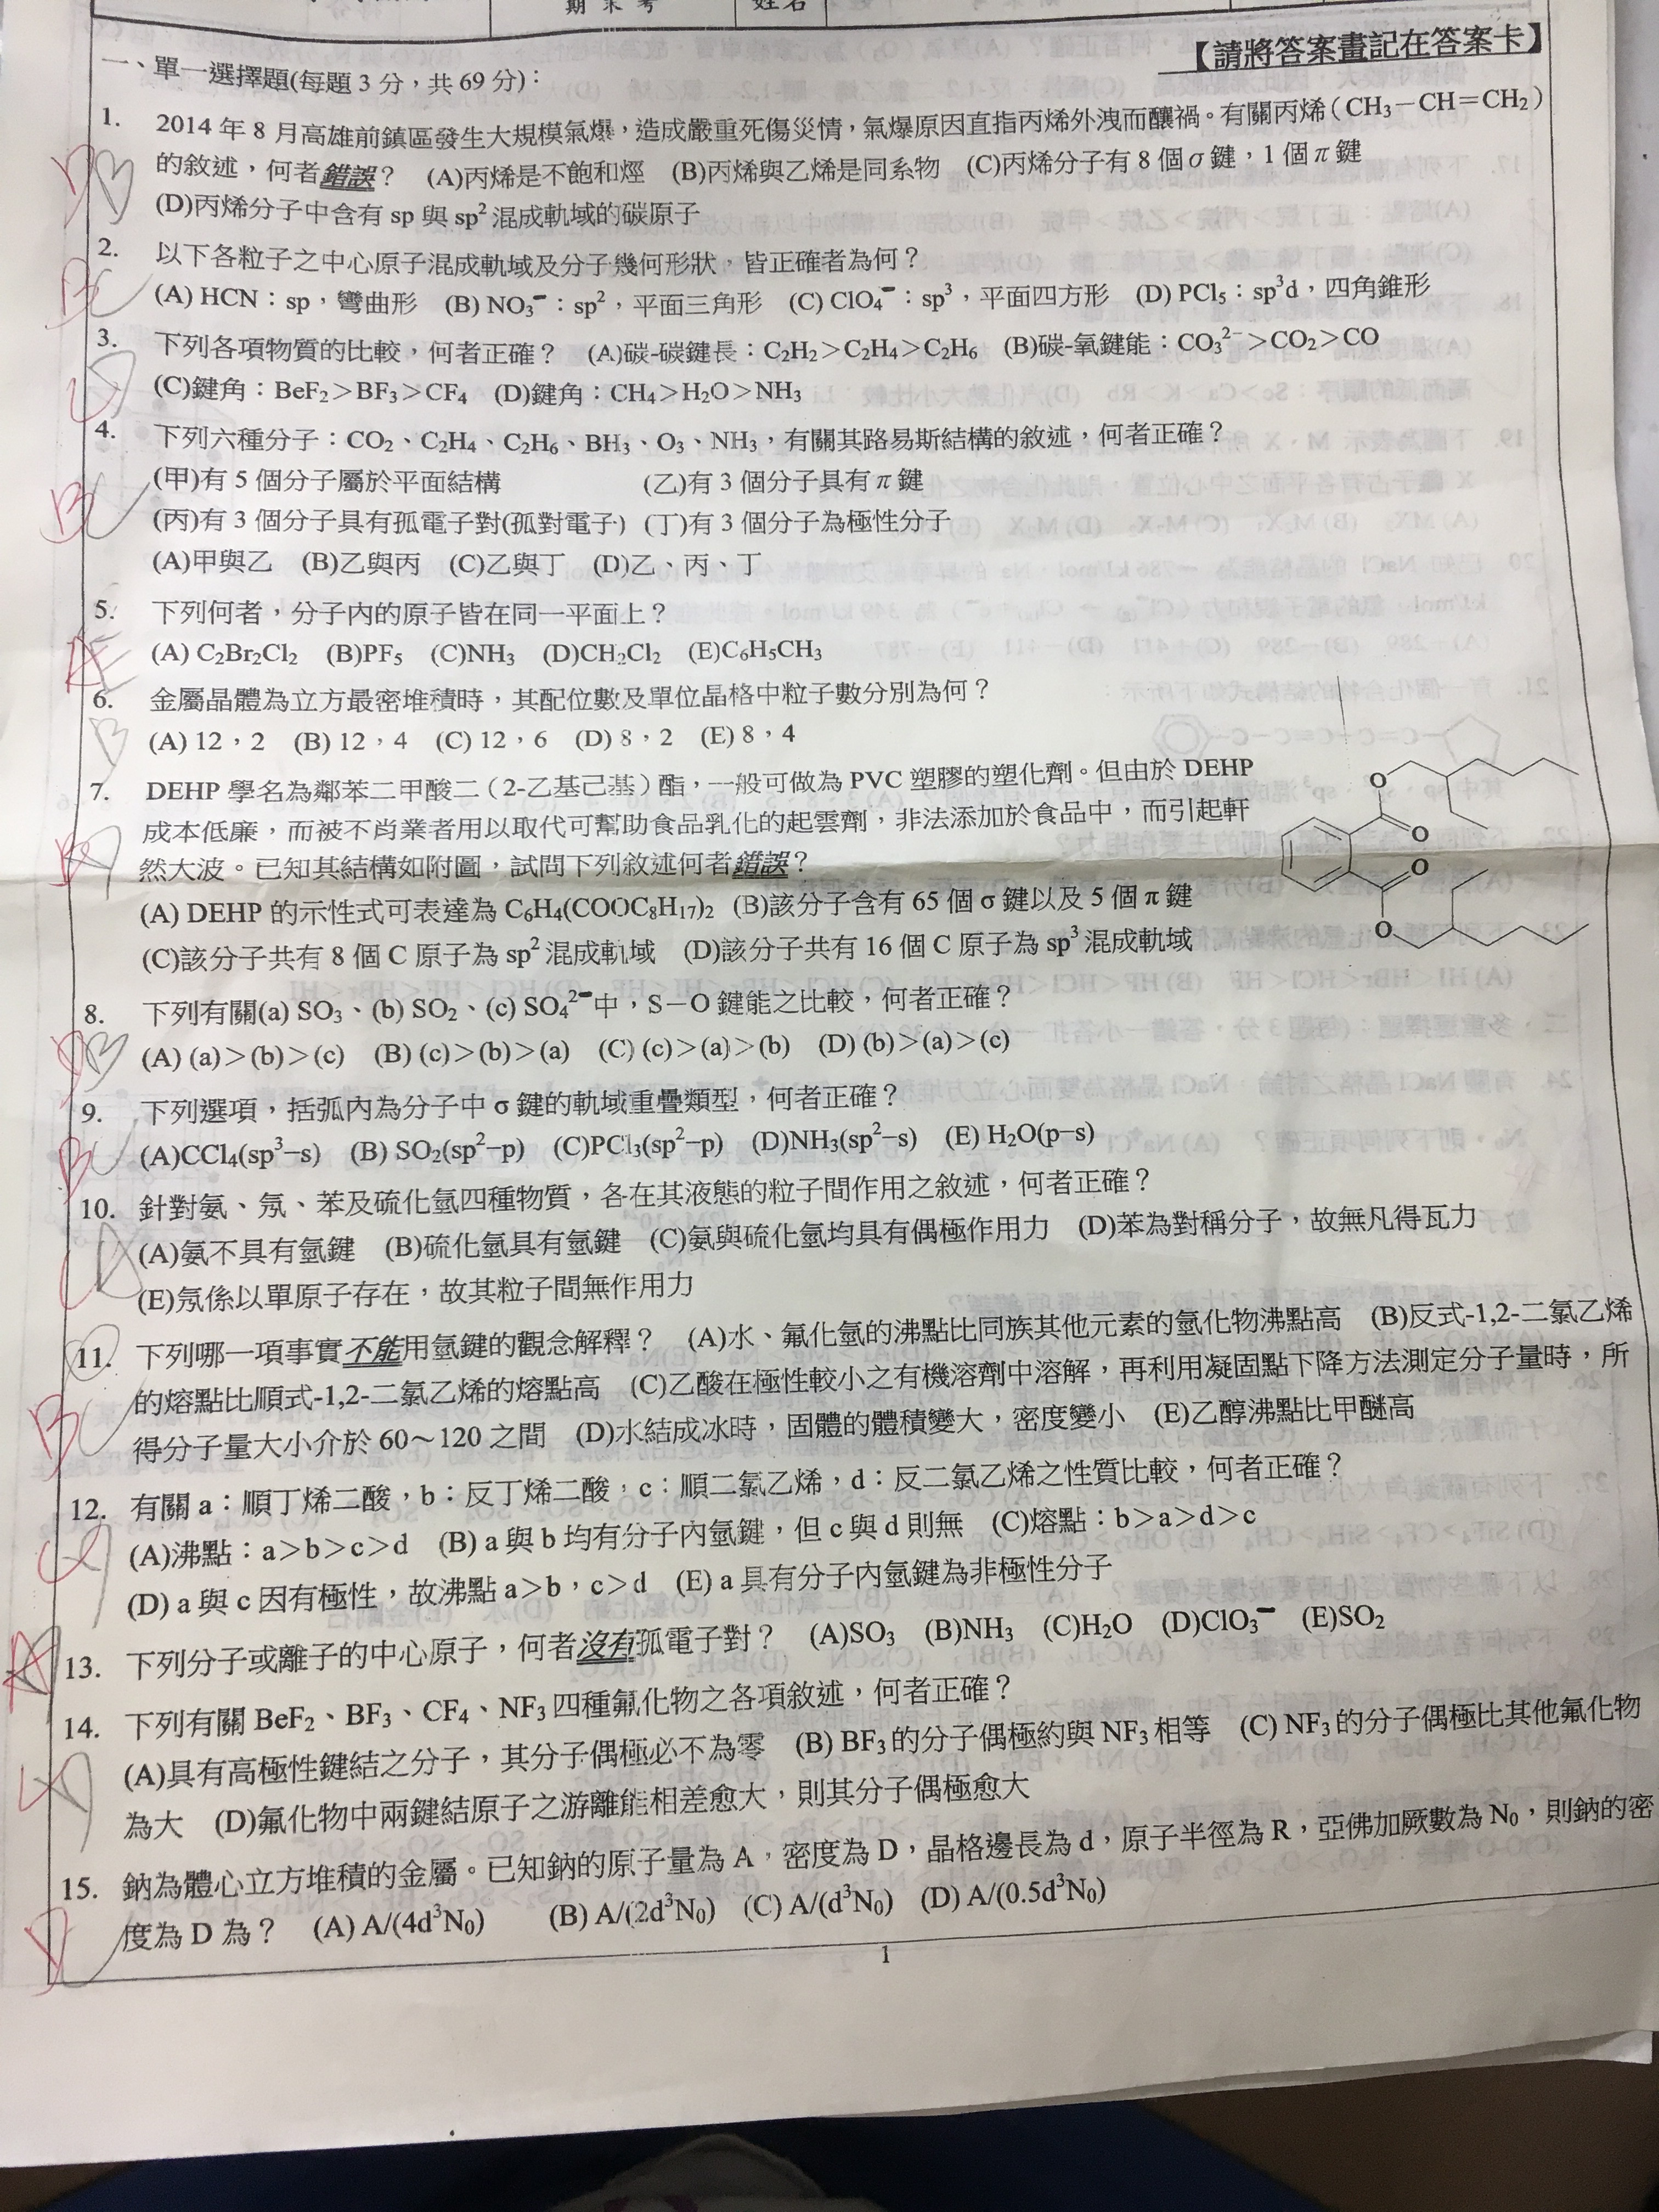 期 末 考
姓名
【請將答案畫記在答案卡】
一、單一選擇題(每題 3 分，共 69 分)：
1. 2014 年 8 月高雄前鎮區發生大規模氣爆，造成嚴重死傷災情，氣爆原因直指丙烯外洩而釀禍。有關丙烯（CH₃－CH＝CH₂）
的敘述，何者錯誤？ (A)丙烯是不飽和烴 (B)丙烯與乙烯是同系物 (C)丙烯分子有 8 個σ鍵，1 個π鍵
(D)丙烯分子中含有 sp 與 sp² 混成軌域的碳原子
2. 以下各粒子之中心原子混成軌域及分子幾何形狀，皆正確者為何？
(A) HCN：sp，彎曲形 (B) NO₃⁻：sp²，平面三角形 (C) ClO₄⁻：sp³，平面四方形 (D) PCl₅：sp³d，四角錐形
3. 下列各項物質的比較，何者正確？ (A)碳-碳鍵長：C₂H₂＞C₂H₄＞C₂H₆ (B)碳-氧鍵能：CO₃²⁻＞CO₂＞CO
(C)鍵角：BeF₂＞BF₃＞CF₄ (D)鍵角：CH₄＞H₂O＞NH₃
4. 下列六種分子：CO₂、C₂H₄、C₂H₆、BH₃、O₃、NH₃，有關其路易斯結構的敘述，何者正確？
(甲)有 5 個分子屬於平面結構 (乙)有 3 個分子具有π鍵
(丙)有 3 個分子具有孤電子對(孤對電子) (丁)有 3 個分子為極性分子
(A)甲與乙 (B)乙與丙 (C)乙與丁 (D)乙、丙、丁
5. 下列何者，分子內的原子皆在同一平面上？
(A) C₂Br₂Cl₂ (B)PF₅ (C)NH₃ (D)CH₂Cl₂ (E)C₆H₅CH₃
6. 金屬晶體為立方最密堆積時，其配位數及單位晶格中粒子數分別為何？
(A) 12，2 (B) 12，4 (C) 12，6 (D) 8，2 (E) 8，4
7. DEHP 學名為鄰苯二甲酸二（2-乙基己基）酯，一般可做為 PVC 塑膠的塑化劑。但由於 DEHP
成本低廉，而被不肖業者用以取代可幫助食品乳化的起雲劑，非法添加於食品中，而引起軒
然大波。已知其結構如附圖，試問下列敘述何者錯誤？
(A) DEHP 的示性式可表達為 C₆H₄(COOC₈H₁₇)₂ (B)該分子含有 65 個σ鍵以及 5 個π鍵
(C)該分子共有 8 個 C 原子為 sp² 混成軌域 (D)該分子共有 16 個 C 原子為 sp³ 混成軌域
O
O
O
O
8. 下列有關(a) SO₃、(b) SO₂、(c) SO₄²⁻中，S－O 鍵能之比較，何者正確？
(A) (a)＞(b)＞(c) (B) (c)＞(b)＞(a) (C) (c)＞(a)＞(b) (D) (b)＞(a)＞(c)
9. 下列選項，括弧內為分子中σ鍵的軌域重疊類型，何者正確？
(A)CCl₄(sp³–s) (B) SO₂(sp²–p) (C)PCl₃(sp²–p) (D)NH₃(sp²–s) (E) H₂O(p–s)
10. 針對氨、氖、苯及硫化氫四種物質，各在其液態的粒子間作用之敘述，何者正確？
(A)氨不具有氫鍵 (B)硫化氫具有氫鍵 (C)氨與硫化氫均具有偶極作用力 (D)苯為對稱分子，故無凡得瓦力
(E)氖係以單原子存在，故其粒子間無作用力
11. 下列哪一項事實不能用氫鍵的觀念解釋？ (A)水、氟化氫的沸點比同族其他元素的氫化物沸點高 (B)反式-1,2-二氯乙烯
的熔點比順式-1,2-二氯乙烯的熔點高 (C)乙酸在極性較小之有機溶劑中溶解，再利用凝固點下降方法測定分子量時，所
得分子量大小介於 60～120 之間 (D)水結成冰時，固體的體積變大，密度變小 (E)乙醇沸點比甲醚高
12. 有關 a：順丁烯二酸，b：反丁烯二酸，c：順二氯乙烯，d：反二氯乙烯之性質比較，何者正確？
(A)沸點：a＞b＞c＞d (B) a 與 b 均有分子內氫鍵，但 c 與 d 則無 (C)熔點：b＞a＞d＞c
(D) a 與 c 因有極性，故沸點 a＞b，c＞d (E) a 具有分子內氫鍵為非極性分子
13. 下列分子或離子的中心原子，何者沒有孤電子對？ (A)SO₃ (B)NH₃ (C)H₂O (D)ClO₃⁻ (E)SO₂
14. 下列有關 BeF₂、BF₃、CF₄、NF₃ 四種氟化物之各項敘述，何者正確？
(A)具有高極性鍵結之分子，其分子偶極必不為零 (B) BF₃ 的分子偶極約與 NF₃ 相等 (C) NF₃ 的分子偶極比其他氟化物
為大 (D)氟化物中兩鍵結原子之游離能相差愈大，則其分子偶極愈大
15. 鈉為體心立方堆積的金屬。已知鈉的原子量為 A，密度為 D，晶格邊長為 d，原子半徑為 R，亞佛加厥數為 N₀，則鈉的密
度為 D 為？ (A) A/(4d³N₀) (B) A/(2d³N₀) (C) A/(d³N₀) (D) A/(0.5d³N₀)
1